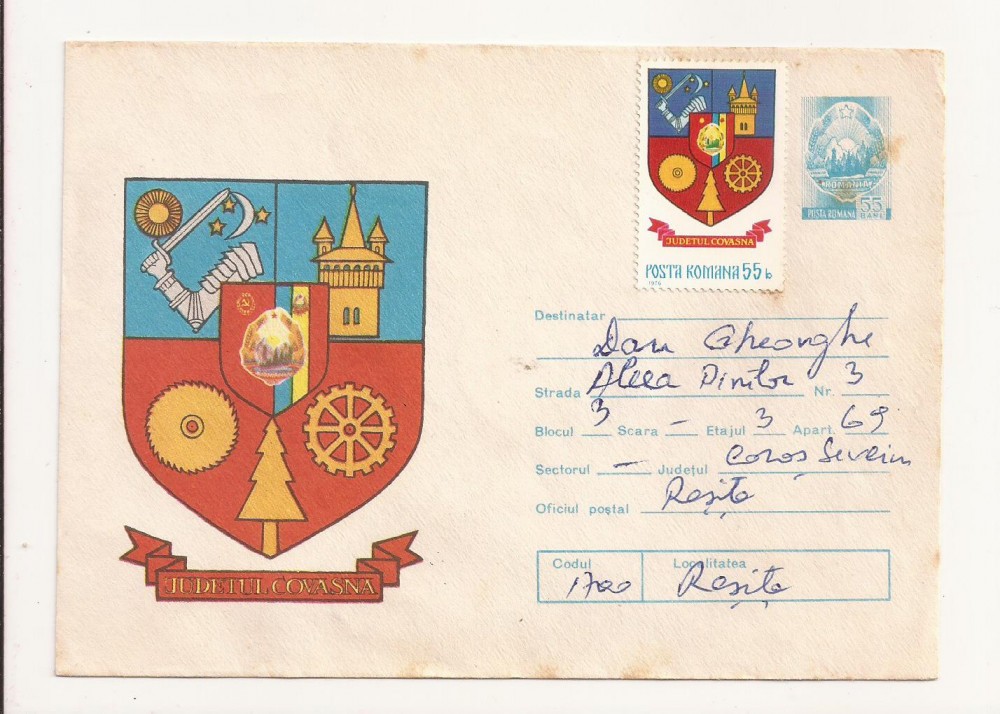 JUDEȚUL COVASNA
POSTA ROMANA 55 b
1976
ROMANIA
POSTA ROMANA 55 BANI
JUDEȚUL COVASNA
Destinatar Dan Gheorghe
Strada Aleea Pinilor Nr. 3
Blocul 3 Scara – Etajul 3 Apart. 69
Sectorul – Județul Caraș Severin
Oficiul poștal Reșița
Codul Localitatea
1700 Reșița